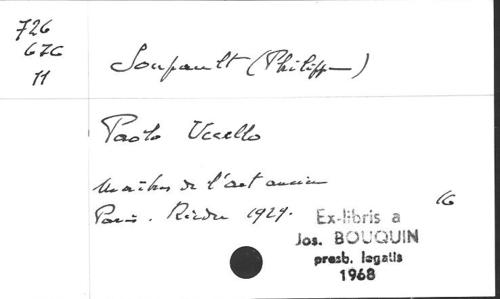 726
676
11
Soupault (Philippe)
Paolo Uccello
Maîtres de l'art ancien
Paris. Rieder 1929.
16
Ex-libris a
Jos. BOUQUIN
presb. legatis
1968